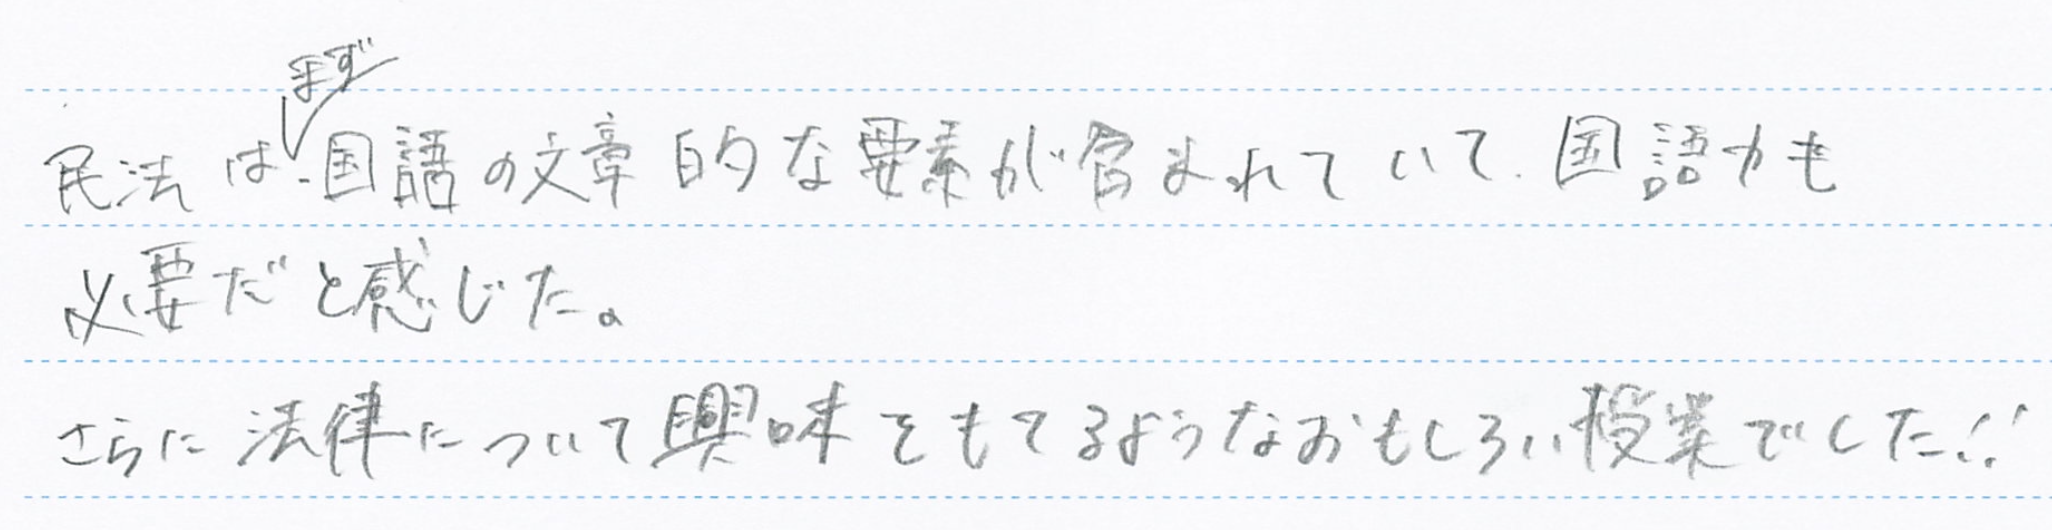 民法はまず、国語の文章的な要素が含まれていて、国語力も
必要だと感じた。
さらに法律について興味をもてるようなおもしろい授業でした!!